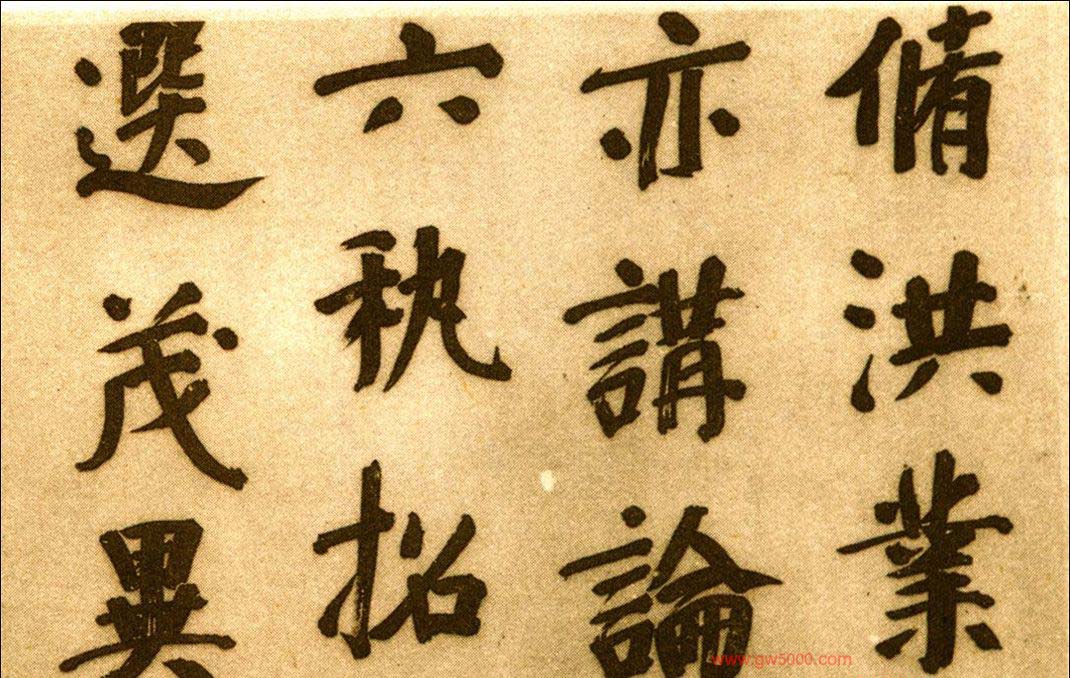 脩洪業
亦講論
六秇招
選茂異
www.gw5000.com